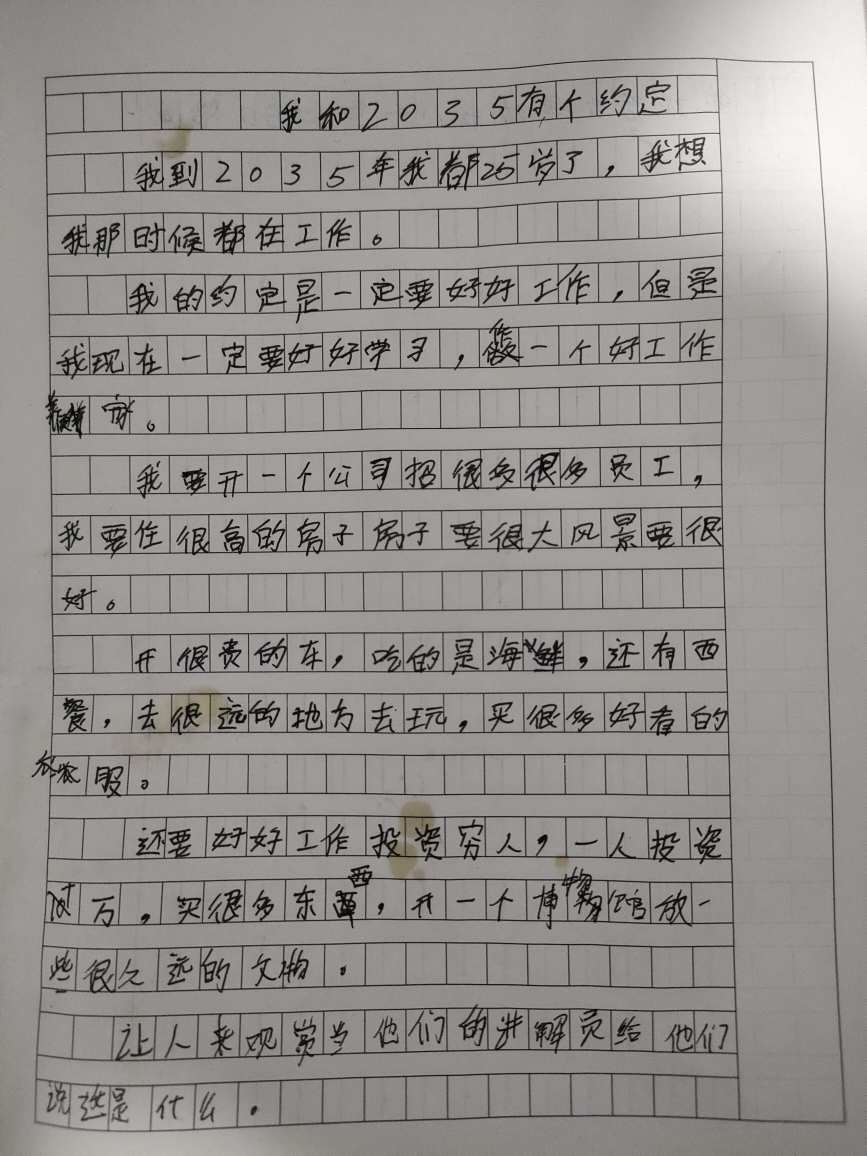 我和2035有个约定
我到2035年我都25岁了，我想
我那时候都在工作。
我的约定是一定要好好工作，但是
我现在一定要好好学习，做一个好工作
赚。
我要开一个公司招很多很多员工，
我要住很高的房子房子要很大风景要很
好。
开很贵的车，吃的是海鲜，还有西
餐，去很远的地方去玩，买很多好看的
衣服。
还要好好工作投资穷人，一人投资
万，买很多东西，开一个博物馆放一
些很久远的文物。
让人来观赏当他们的讲解员给他们
说这是什么。